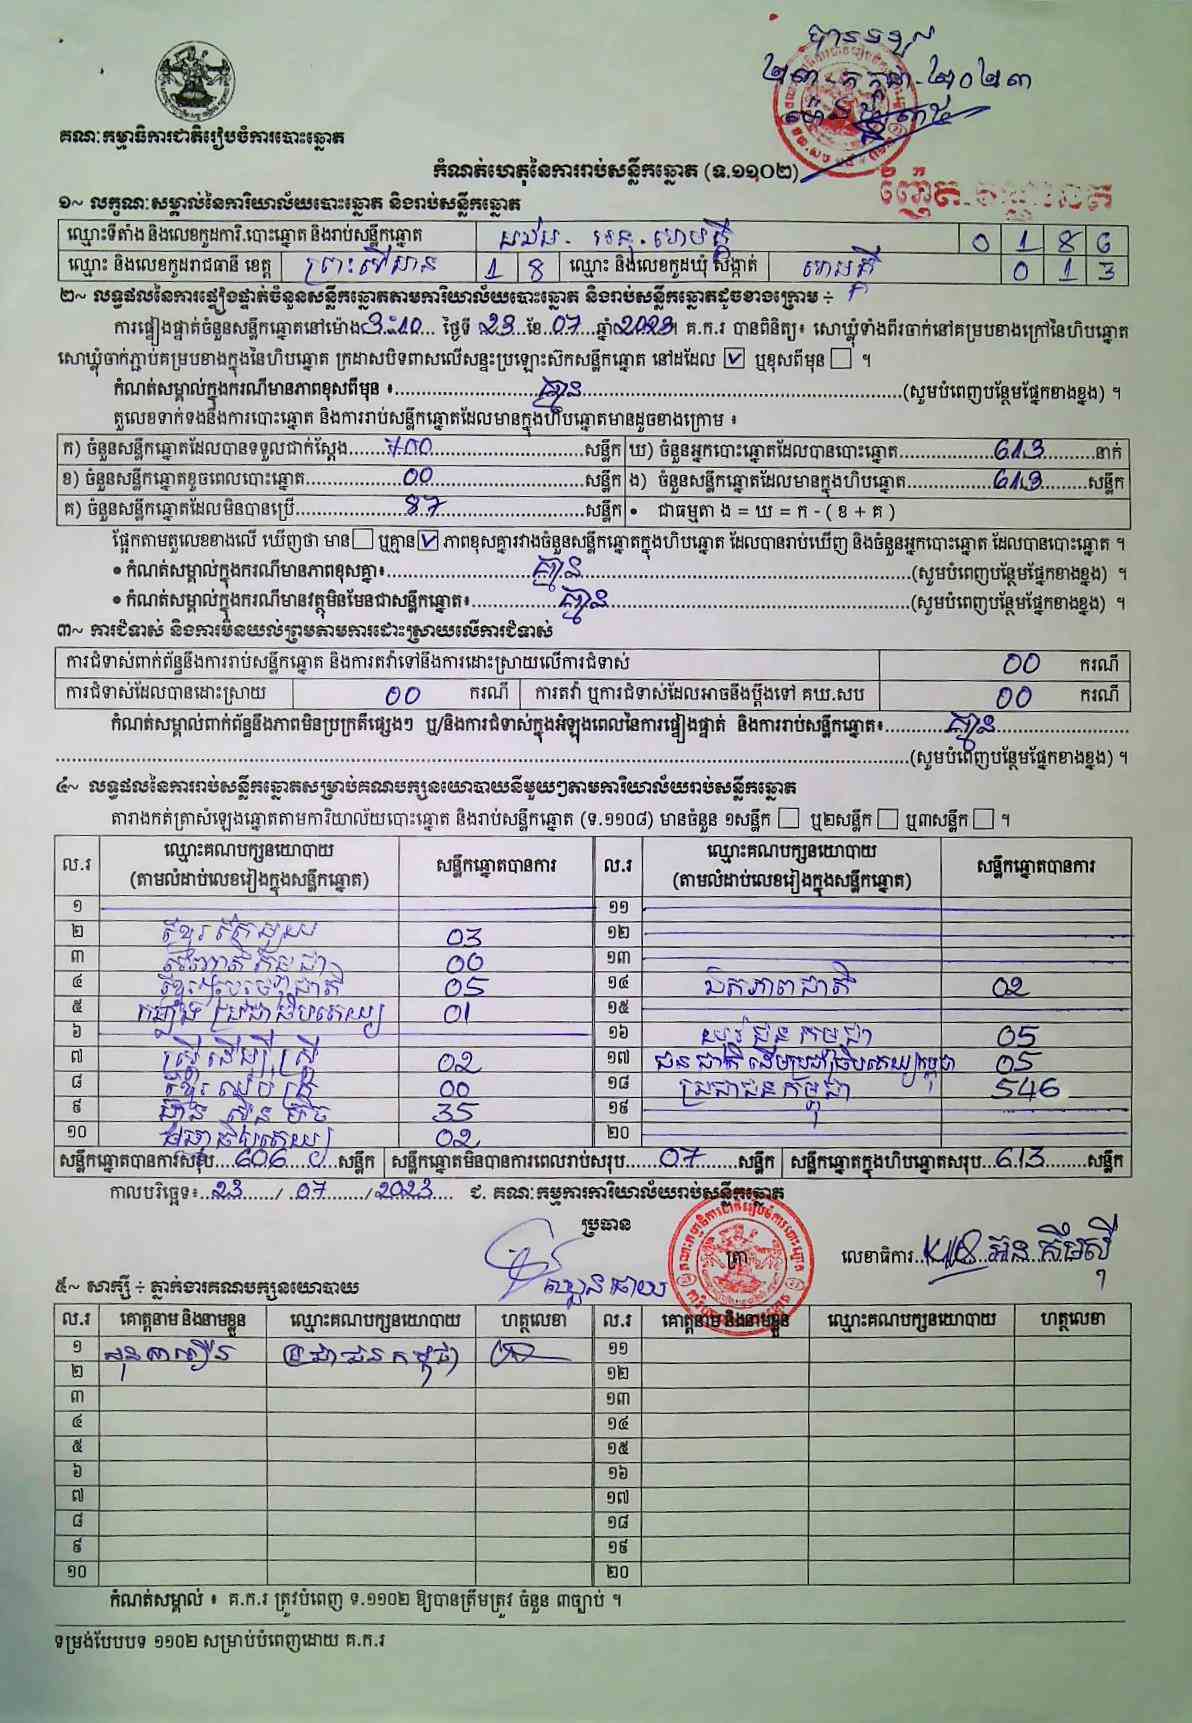 ២៣-កក្កដា-២០២៣
គណៈកម្មាធិការជាតិរៀបចំការបោះឆ្នោត
កំណត់ហេតុនៃការរាប់សន្លឹកឆ្នោត (ទ.១១០២)
១~ លក្ខណៈសម្គាល់នៃការិយាល័យបោះឆ្នោត និងរាប់សន្លឹកឆ្នោត
ឈ្មោះទីតាំង និងលេខកូដការិ.បោះឆ្នោត និងរាប់សន្លឹកឆ្នោត 0 1 8 6
ឈ្មោះ និងលេខកូដរាជធានី ខេត្ត ព្រះសីហនុ 1 8 ឈ្មោះ និងលេខកូដឃុំ សង្កាត់ 0 1 3
២~ លទ្ធផលនៃការផ្ទៀងផ្ទាត់ចំនួនសន្លឹកឆ្នោតតាមការិយាល័យបោះឆ្នោត និងរាប់សន្លឹកឆ្នោតដូចខាងក្រោម ÷
ការផ្ទៀងផ្ទាត់ចំនួនសន្លឹកឆ្នោតនៅម៉ោង 3:10 ថ្ងៃទី 23 ខែ 07 ឆ្នាំ 2023។ គ.ក.រ បានពិនិត្យ៖ សោឃ្លុំទាំងពីរចាក់នៅគម្របខាងក្រៅនៃហិបឆ្នោត
សោឃ្លុំចាក់ភ្ជាប់គម្របខាងក្នុងនៃហិបឆ្នោត ក្រដាសបិទពាសលើសន្ទះប្រឡោះស៊កសន្លឹកឆ្នោត នៅដដែល ☑ ឬខុសពីមុន ☐ ។
កំណត់សម្គាល់ក្នុងករណីមានភាពខុសពីមុន ៖ គ្មាន (សូមបំពេញបន្ថែមផ្នែកខាងខ្នង) ។
តួលេខទាក់ទងនឹងការបោះឆ្នោត និងការរាប់សន្លឹកឆ្នោតដែលមានក្នុងហិបឆ្នោតមានដូចខាងក្រោម ៖
ក) ចំនួនសន្លឹកឆ្នោតដែលបានទទួលជាក់ស្តែង 700 សន្លឹក ឃ) ចំនួនអ្នកបោះឆ្នោតដែលបានបោះឆ្នោត 613 នាក់
ខ) ចំនួនសន្លឹកឆ្នោតខូចពេលបោះឆ្នោត 00 សន្លឹក ង) ចំនួនសន្លឹកឆ្នោតដែលមានក្នុងហិបឆ្នោត 613 សន្លឹក
គ) ចំនួនសន្លឹកឆ្នោតដែលមិនបានប្រើ 87 សន្លឹក • ជាធម្មតា ង = ឃ = ក - ( ខ + គ )
ផ្អែកតាមតួលេខខាងលើ ឃើញថា មាន ☐ ឬគ្មាន ☑ ភាពខុសគ្នារវាងចំនួនសន្លឹកឆ្នោតក្នុងហិបឆ្នោត ដែលបានរាប់ឃើញ និងចំនួនអ្នកបោះឆ្នោត ដែលបានបោះឆ្នោត ។
• កំណត់សម្គាល់ក្នុងករណីមានភាពខុសគ្នា៖ គ្មាន (សូមបំពេញបន្ថែមផ្នែកខាងខ្នង) ។
• កំណត់សម្គាល់ក្នុងករណីមានវត្ថុមិនមែនជាសន្លឹកឆ្នោត៖ គ្មាន (សូមបំពេញបន្ថែមផ្នែកខាងខ្នង) ។
៣~ ការជំទាស់ និងការមិនយល់ព្រមតាមការដោះស្រាយលើការជំទាស់
ការជំទាស់ពាក់ព័ន្ធនឹងការរាប់សន្លឹកឆ្នោត និងការតវ៉ាទៅនឹងការដោះស្រាយលើការជំទាស់ 00 ករណី
ការជំទាស់ដែលបានដោះស្រាយ 00 ករណី ការតវ៉ា ឬការជំទាស់ដែលអាចនឹងប្តឹងទៅ គឃ.សប 00 ករណី
កំណត់សម្គាល់ពាក់ព័ន្ធនឹងភាពមិនប្រក្រតីផ្សេងៗ ឬ/និងការជំទាស់ក្នុងអំឡុងពេលនៃការផ្ទៀងផ្ទាត់ និងការរាប់សន្លឹកឆ្នោត៖ គ្មាន
(សូមបំពេញបន្ថែមផ្នែកខាងខ្នង) ។
៤~ លទ្ធផលនៃការរាប់សន្លឹកឆ្នោតសម្រាប់គណបក្សនយោបាយនីមួយៗតាមការិយាល័យរាប់សន្លឹកឆ្នោត
តារាងកត់ត្រាសំឡេងឆ្នោតតាមការិយាល័យបោះឆ្នោត និងរាប់សន្លឹកឆ្នោត (ទ.១១០៨) មានចំនួន ១សន្លឹក ☐ ឬ២សន្លឹក ☐ ឬ៣សន្លឹក ☐ ។
ល.រ ឈ្មោះគណបក្សនយោបាយ សន្លឹកឆ្នោតបានការ ល.រ ឈ្មោះគណបក្សនយោបាយ សន្លឹកឆ្នោតបានការ
(តាមលំដាប់លេខរៀងក្នុងសន្លឹកឆ្នោត) (តាមលំដាប់លេខរៀងក្នុងសន្លឹកឆ្នោត)
១ ១១
២ ខ្មែរតែមួយ 03 ១២
៣ 00 ១៣
៤ 05 ១៤ ឯកភាពជាតិ 02
៥ កម្លាំងប្រជាធិបតេយ្យ 01 ១៥
៦ ១៦ យុវជនកម្ពុជា 05
៧ ស្ត្រីដើម្បីស្ត្រី 02 ១៧ ជនជាតិដើមប្រជាធិបតេយ្យកម្ពុជា 05
៨ 00 ១៨ ប្រជាជនកម្ពុជា 546
៩ ហ៊្វុនស៊ិនប៉ិច 35 ១៩
១០ 02 ២០
សន្លឹកឆ្នោតបានការសរុប 606 សន្លឹក សន្លឹកឆ្នោតមិនបានការពេលរាប់សរុប 07 សន្លឹក សន្លឹកឆ្នោតក្នុងហិបឆ្នោតសរុប 613 សន្លឹក
កាលបរិច្ឆេទ៖ 23 / 07 / 2023 ជ. គណៈកម្មការការិយាល័យរាប់សន្លឹកឆ្នោត
ប្រធាន ត្រា លេខាធិការ
៥~ សាក្សី ÷ ភ្នាក់ងារគណបក្សនយោបាយ
ល.រ គោត្តនាម និងនាមខ្លួន ឈ្មោះគណបក្សនយោបាយ ហត្ថលេខា ល.រ គោត្តនាម និងនាមខ្លួន ឈ្មោះគណបក្សនយោបាយ ហត្ថលេខា
១ ប្រជាជនកម្ពុជា ១១
២ ១២
៣ ១៣
៤ ១៤
៥ ១៥
៦ ១៦
៧ ១៧
៨ ១៨
៩ ១៩
១០ ២០
កំណត់សម្គាល់ ៖ គ.ក.រ ត្រូវបំពេញ ទ.១១០២ ឱ្យបានត្រឹមត្រូវ ចំនួន ៣ច្បាប់ ។
ទម្រង់បែបបទ ១១០២ សម្រាប់បំពេញដោយ គ.ក.រ